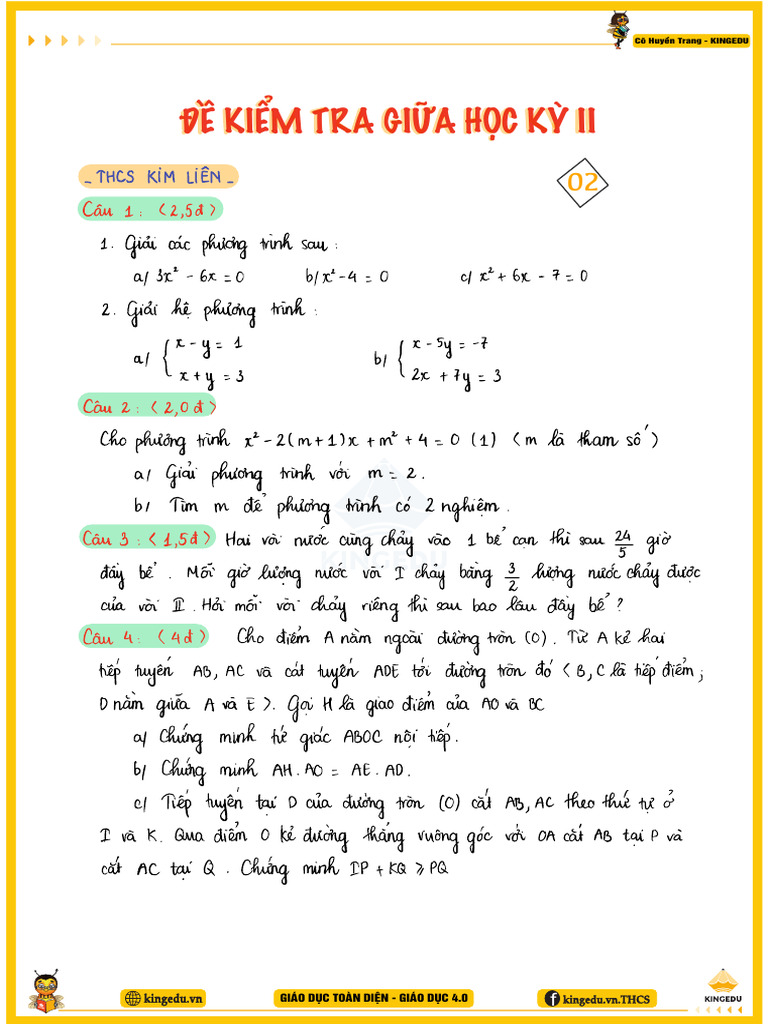 Cô Huyền Trang - KINGEDU
ĐỀ KIỂM TRA GIỮA HỌC KỲ II
_ THCS KIM LIÊN _
02
Câu 1 : < 2,5đ >
1. Giải các phương trình sau :
a/ 3x² - 6x = 0 b/ x² - 4 = 0 c/ x² + 6x - 7 = 0
2. Giải hệ phương trình :
a/ { x - y = 1
x + y = 3
b/ { x - 5y = -7
2x + 7y = 3
Câu 2 : < 2,0đ >
Cho phương trình x² - 2(m+1)x + m² + 4 = 0 (1) < m là tham số >
a/ Giải phương trình với m = 2 .
b/ Tìm m để phương trình có 2 nghiệm .
Câu 3 : < 1,5đ > Hai vòi nước cùng chảy vào 1 bể cạn thì sau 24/5 giờ
đầy bể . Mỗi giờ lượng nước vòi I chảy bằng 3/2 lượng nước chảy được
của vòi II . Hỏi mỗi vòi chảy riêng thì sau bao lâu đầy bể ?
Câu 4 : < 4đ > Cho điểm A nằm ngoài đường tròn (O) . Từ A kẻ hai
tiếp tuyến AB, AC và cát tuyến ADE tới đường tròn đó < B, C là tiếp điểm ;
D nằm giữa A và E > . Gọi H là giao điểm của AO và BC
a/ Chứng minh tứ giác ABOC nội tiếp .
b/ Chứng minh AH . AO = AE . AD .
c/ Tiếp tuyến tại D của đường tròn (O) cắt AB, AC theo thứ tự ở
I và K . Qua điểm O kẻ đường thẳng vuông góc với OA cắt AB tại P và
cắt AC tại Q . Chứng minh IP + KQ ⩾ PQ
KINGEDU
kingedu.vn
GIÁO DỤC TOÀN DIỆN - GIÁO DỤC 4.0
kingedu.vn.THCS
KINGEDU